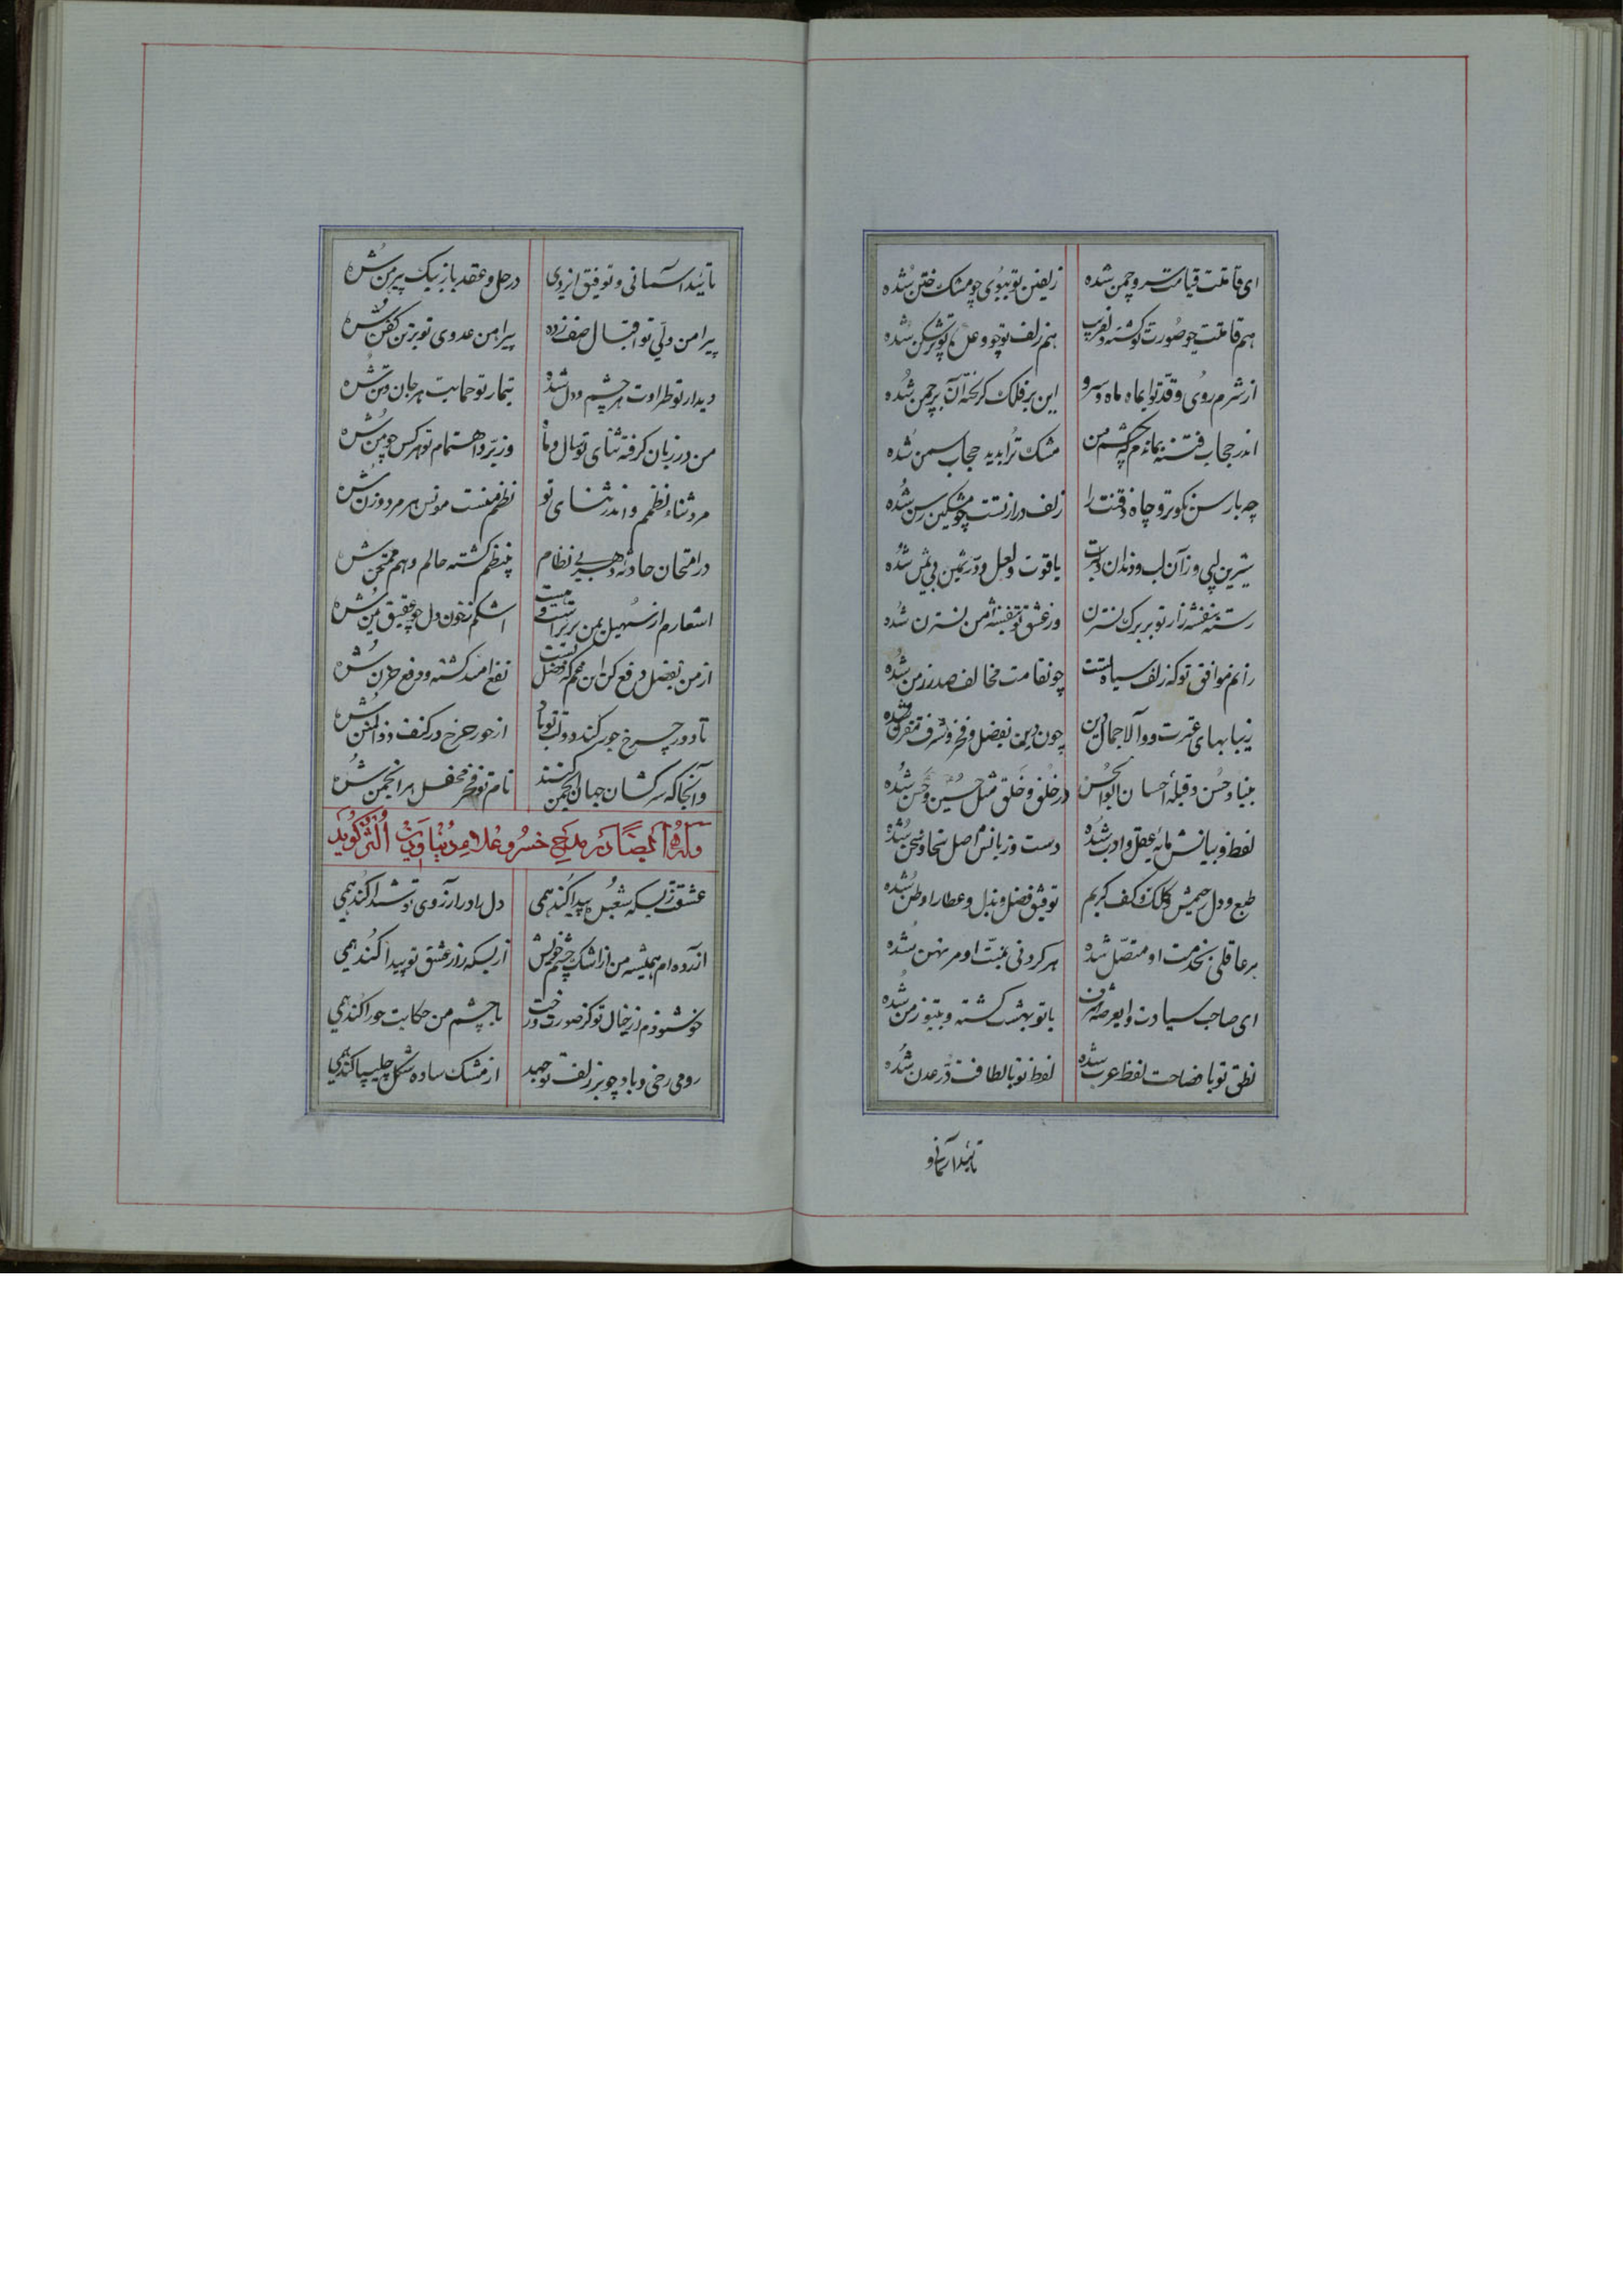 ای قامتت قیامت سرو چمن شده زلفین تو ببوی چو مشک ختن شده
هم قامتت چو صورت تو کشته دلفریب هم زلف تو چو وعدهٔ تو پرشکن شده
از شرم روی و قد تو ای ماه ماه و سرو این بر فلک کریخته آن بر چمن شده
اندر حجاب فتنه بماندم که چشم من مشک ترا بدید حجاب سمن شده
چه با رسن نکوتر و چاه ذقنت را زلف دراز تست چو مشکین رسن شده
شیرین لبی وز آن لب و دندان یاقوت و لعل و در ثمین بی ثمن شده
رسته بنفشه زار تو بر برک نسترن وز عشق تو بنفشه من نسترن شده
رانم موافق تو که زلف سیاه تست چون قامت مخالف صدر زمن شده
زیبا بهای عترت والا جمال دین چون دین بفضل و فخر و شرف
بنیاد حسن و قبلهٔ احسان ابوالحسن در خلق و خلق مثل حسین و حسن شده
لفظ و بیانش مایهٔ عقل و ادب شده دست و زبانش اصل سخا و سخن شده
طبع و دل رحیمش و کلک و کف کریم توفیق فضل و بذل و عطا را وطن شده
بر عاقلی بخدمت او متصل شده هر کردنی بمنت او مرتهن شده
ای صاحب سیادت با تو بهشت کشته زمن شده
نطق تو با فصاحت لفظ عرب شده لفظ تو با لطافت در عدن شده
تایید آسمانی و
تایید آسمانی و توفیق ایزدی در حل و عقد با زنیک پیرهن شده
پیرامن ولی تو اقبال صف زده پیراهن عدوی تو بر تن کفن شده
دیدار تو طراوت هر چشم و دل شده تیمار تو حمایت هر جان و تن شده
من در زبان کرفته ثنای تو سال و ماه وز بر و اهتمام تو هر کس چو من شده
مرد ثناء نظمم و اندر ثنای تو نظم منست مونس هر مرد و زن شده
در امتحان حادثهٔ دهر بی نظام بینظم کشته حالم و هم ممتحن شده
اشعارم از سهیل یمن برتر است و هست اشکم ز خون دل چو عقیق یمن شده
از من بفضل دفع کن این غم که فضل تست نفع امید کشته و دفع حزن شده
تا دور چرخ جور کند دولت تو باد از جور چرخ در کنف ذوالمنن شده
وآنجا که سرکشان جهان انجمن کنند نام تو فخر محفل هر انجمن شده
وله ایضا در مدح خسرو علاء دنیا و دین اتسز کوید
عشقت زبسکه شعبده پیدا کند همی دلرا در آرزوی تو شیدا کند همی
آزرده ام همیشه من از اشک چشم خویش از بسکه راز عشق تو پیدا کند همی
خوشنودم از خیال تو کز صورت رخت با چشم من حکایت حورا کند همی
رومی رخی و باد چو بر زلف تو جهد از مشک ساده شکل چلیپا کند همی